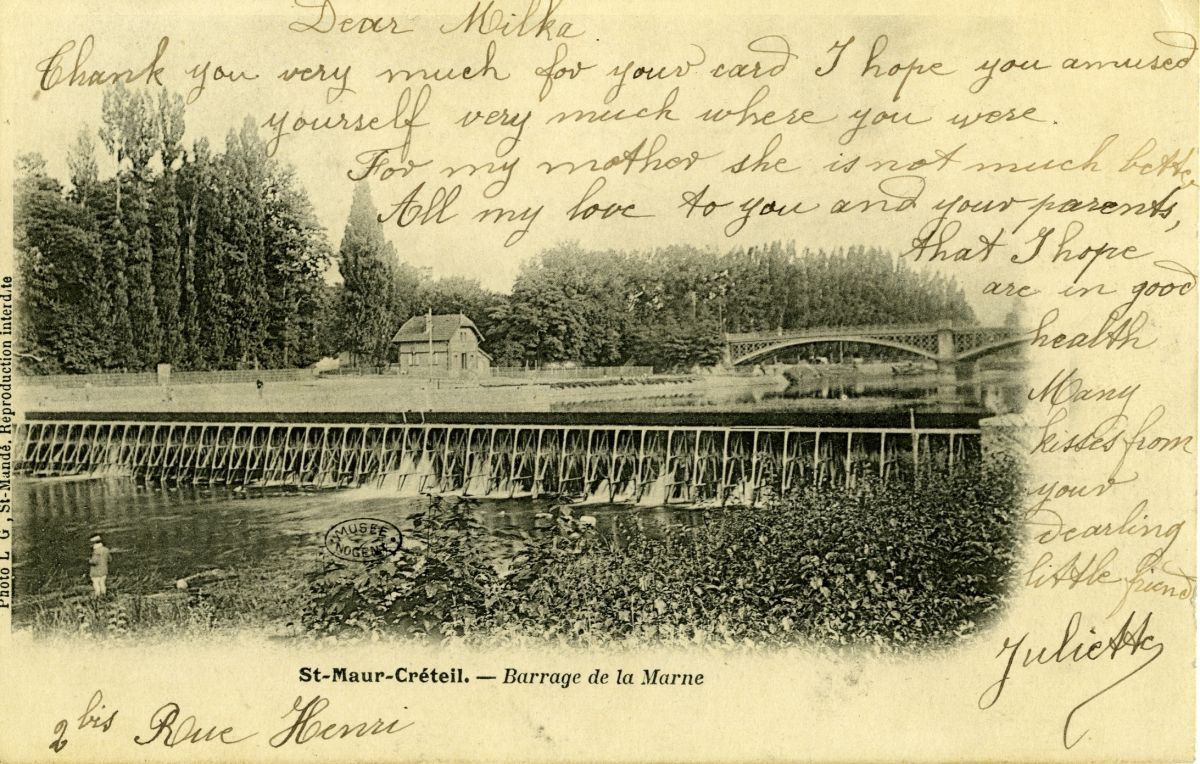 Dear Milka
Thank you very much for your card I hope you amused
yourself very much where you were.
For my mother she is not much better
All my love to you and your parents,
that I hope
are in good
health
Many
kisses from
your
dearling
little friend
Juliette
Photo L G, St-Mandé. Reproduction interd.te
MUSÉE
NOGENT
St-Maur-Créteil. — Barrage de la Marne
2 bis Rue Henri